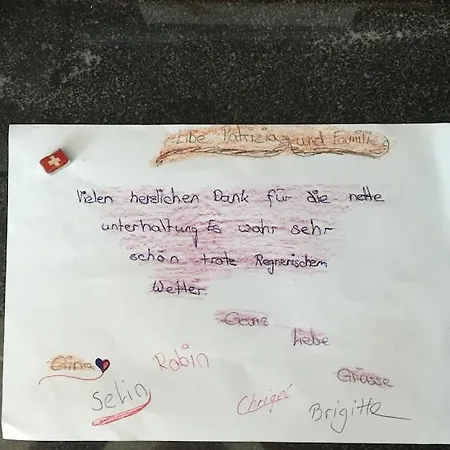 Libe Patrizia und Familie
Vielen herzlichen Dank für die nette
unterhaltung Es wahr sehr
schön trotz Regnerischem
Wetter.
Ganz
liebe
Grüsse
Gina Robin
Selin Chrigel Brigitte